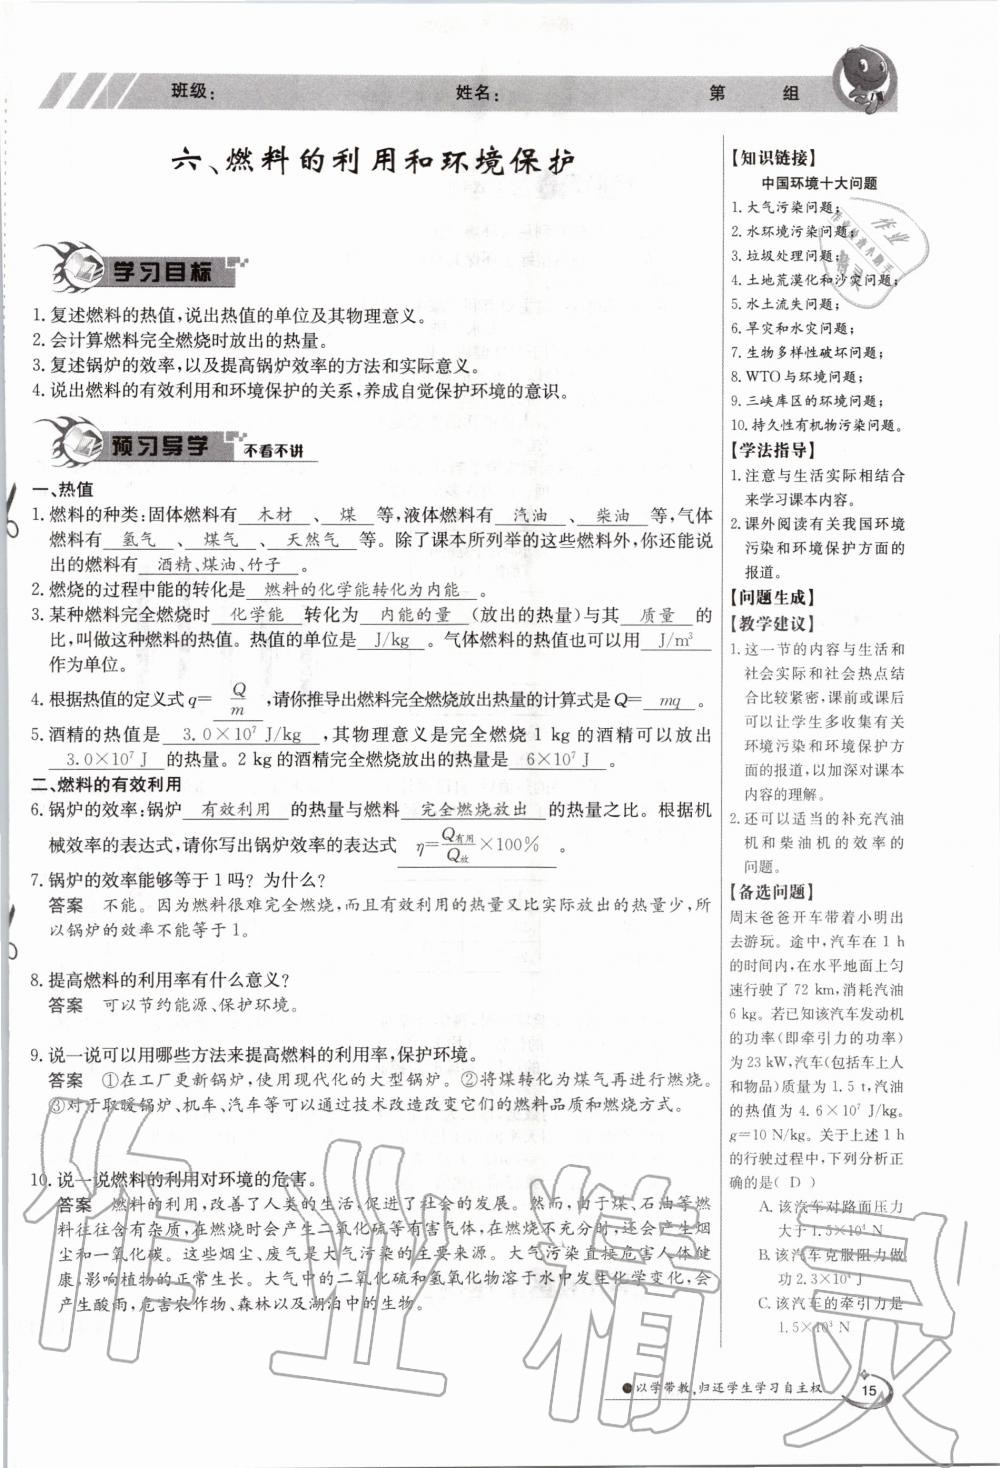 班级：　姓名：　第　组
六、燃料的利用和环境保护
学习目标
1. 复述燃料的热值,说出热值的单位及其物理意义。
2. 会计算燃料完全燃烧时放出的热量。
3. 复述锅炉的效率,以及提高锅炉效率的方法和实际意义。
4. 说出燃料的有效利用和环境保护的关系,养成自觉保护环境的意识。
预习导学 不看不讲
一、热值
1. 燃料的种类:固体燃料有 木材 、 煤 等,液体燃料有 汽油 、 柴油 等,气体
燃料有 氢气 、 煤气 、 天然气 等。除了课本所列举的这些燃料外,你还能说
出的燃料有 酒精、煤油、竹子 。
2. 燃烧的过程中能的转化是 燃料的化学能转化为内能 。
3. 某种燃料完全燃烧时 化学能 转化为 内能的量 (放出的热量)与其 质量 的
比,叫做这种燃料的热值。热值的单位是 J/kg 。气体燃料的热值也可以用 J/m³
作为单位。
4. 根据热值的定义式q= Q/m ,请你推导出燃料完全燃烧放出热量的计算式是Q= mq 。
5. 酒精的热值是 3.0×10⁷ J/kg ,其物理意义是完全燃烧 1 kg 的酒精可以放出
3.0×10⁷ J 的热量。2 kg 的酒精完全燃烧放出的热量是 6×10⁷ J 。
二、燃料的有效利用
6. 锅炉的效率:锅炉 有效利用 的热量与燃料 完全燃烧放出 的热量之比。根据机
械效率的表达式,请你写出锅炉效率的表达式 η=Q有用/Q放×100% 。
7. 锅炉的效率能够等于 1 吗? 为什么?
答案 不能。因为燃料很难完全燃烧,而且有效利用的热量又比实际放出的热量少,所
以锅炉的效率不能等于 1。
8. 提高燃料的利用率有什么意义?
答案 可以节约能源、保护环境。
9. 说一说可以用哪些方法来提高燃料的利用率,保护环境。
答案 ①在工厂更新锅炉,使用现代化的大型锅炉。②将煤转化为煤气再进行燃烧。
③对于取暖锅炉、机车、汽车等可以通过技术改造改变它们的燃料品质和燃烧方式。
10. 说一说燃料的利用对环境的危害。
答案 燃料的利用,改善了人类的生活,促进了社会的发展。然而,由于煤、石油等燃
料往往含有杂质,在燃烧时会产生二氧化硫等有害气体,在燃烧不充分时,还会产生烟
尘和一氧化碳。这些烟尘、废气是大气污染的主要来源。大气污染直接危害人体健
康,影响植物的正常生长。大气中的二氧化硫和氮氧化物溶于水中发生化学变化,会
产生酸雨,危害农作物、森林以及湖泊中的生物。
【知识链接】
中国环境十大问题
1. 大气污染问题;
2. 水环境污染问题;
3. 垃圾处理问题;
4. 土地荒漠化和沙灾问题;
5. 水土流失问题;
6. 旱灾和水灾问题;
7. 生物多样性破坏问题;
8. WTO与环境问题;
9. 三峡库区的环境问题;
10. 持久性有机物污染问题。
【学法指导】
1. 注意与生活实际相结合
来学习课本内容。
2. 课外阅读有关我国环境
污染和环境保护方面的
报道。
【问题生成】
【教学建议】
1. 这一节的内容与生活和
社会实际和社会热点结
合比较紧密,课前或课后
可以让学生多收集有关
环境污染和环境保护方
面的报道,以加深对课本
内容的理解。
2. 还可以适当的补充汽油
机和柴油机的效率的
问题。
【备选问题】
周末爸爸开车带着小明出
去游玩。途中,汽车在 1 h
的时间内,在水平地面上匀
速行驶了 72 km,消耗汽油
6 kg。若已知该汽车发动机
的功率(即牵引力的功率)
为 23 kW,汽车(包括车上人
和物品)质量为 1.5 t,汽油
的热值为 4.6×10⁷ J/kg。
g=10 N/kg。关于上述 1 h
的行驶过程中,下列分析正
确的是( D )
A. 该汽车对路面压力
大于 1.5×10⁴ N
B. 该汽车克服阻力做
功 2.3×10⁴ J
C. 该汽车的牵引力是
1.5×10³ N
以学带教,归还学生学习自主权
15
作业精灵